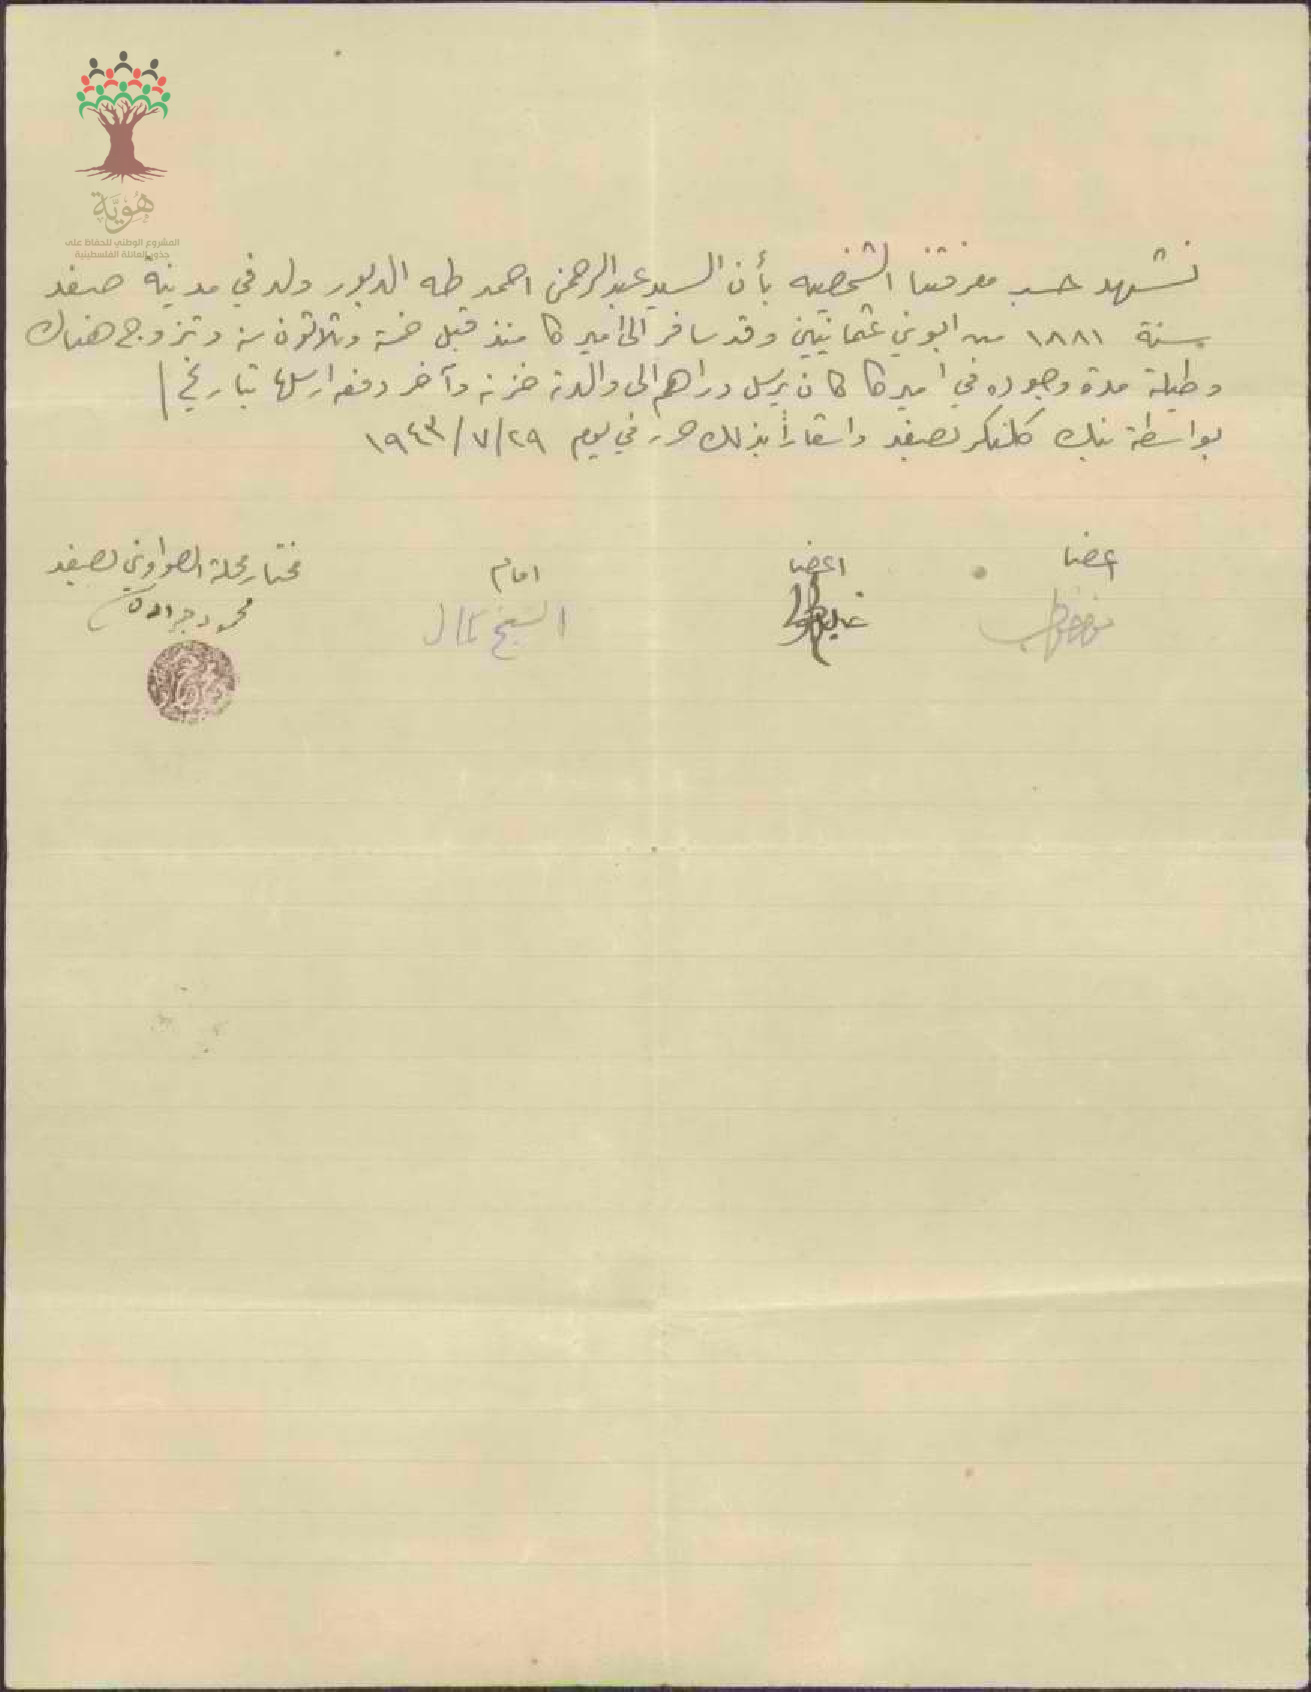 هُوِيَّة
المشروع الوطني للحفاظ على
جذور العائلة الفلسطينية
نشهد حسب معرفتنا الشخصيه بأن السيد عبدالرحمن احمد طه الدبور ولد في مدينة صفد
سنة ١٨٨١ من ابوين عثمانيين وقد سافر الى اميركا منذ قبل خمسة وثلاثون سنه وتزوج هناك
وطيلة مدة وجوده في اميركا كان يرسل دراهم الى والدته خزنه وآخر دفعه ارسلها بتاريخ /
بواسطة بنك بصفد بذلك حرر في يوم ٢٩/٧/١٩٤٣
اعضا
اعضا
امام
مختار محلة الصواوين بصفد
الشيخ كمال
محمود جراده